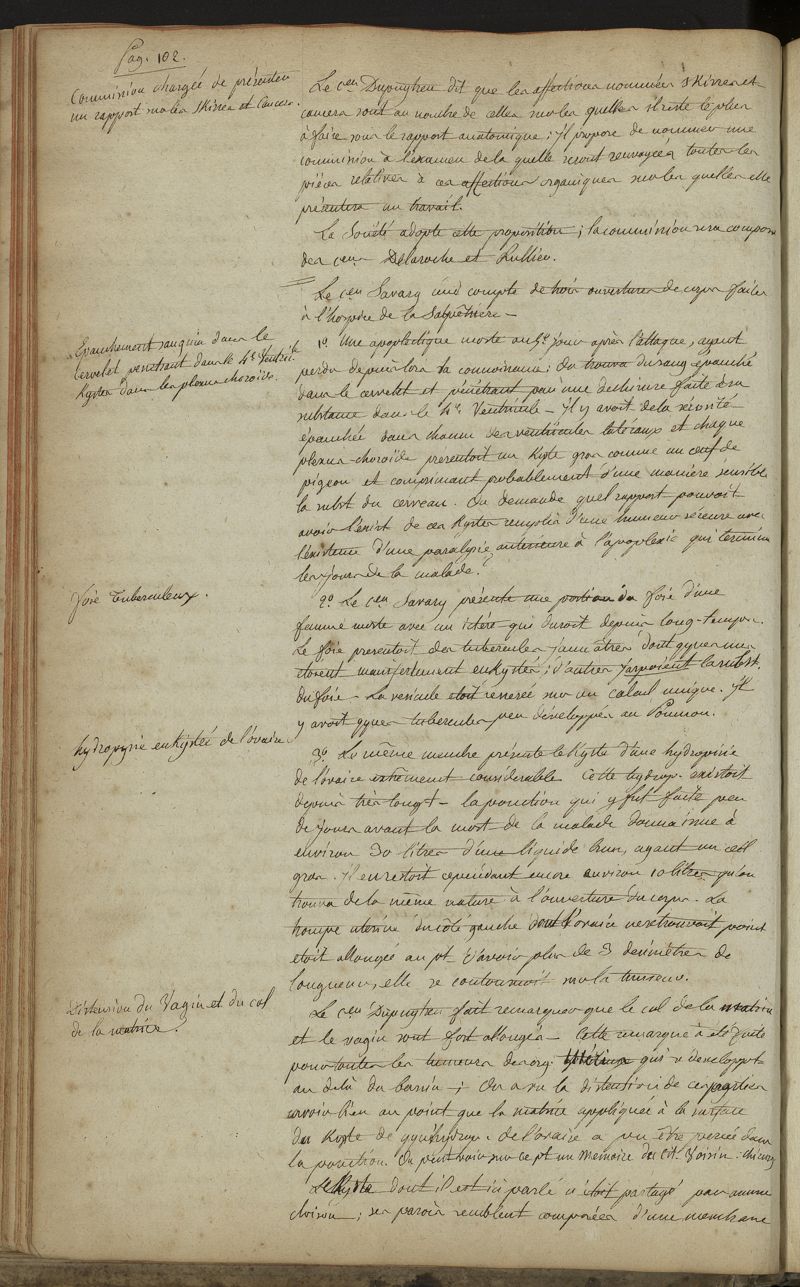 Pag. 102.
Commission chargée de présenter
un rapport sur les Skirres et Cancers.
Le cen Dupuytren dit que les affections nommées skirres et
cancers sont au nombre de celles sur les quelles il reste le plus
à faire sous le rapport anatomique ; Il propose de nommer une
commission à l'examen de la quelle seront renvoyées toutes les
pièces relatives à ces affections organiques sur les quelles elle
présentera un travail.
La Société adopte cette proposition ; la commission sera composée
des cens Delaroche et Rullier.
Le cen Savary rend compte de trois ouvertures de corps faites
à l'hospice de la Salpêtrière —
Epanchement sanguin dans le
cervelet penetrant dans le 4e Ventricle
Kystes dans les plexus choroïdes.
1o Une apoplectique morte au 5e jour après l'attaque, ayant
perdu depuis lors sa connoissance ; On trouva du sang épanché
dans le cervelet et pénétrant par une déchirure faite à sa
substance dans le 4e Ventricule — Il y avoit de la sérosité
épanchée dans chacun des ventricules latéraux et chaque
plexus-choroïde presentoit un kyste gros comme un oeuf de
pigeon et comprimant probablement d'une manière sensible
la subst. du cerveau. On demande quel rapport pouvoit
avoir l'exist. de ces kystes remplis d'une humeur séreuse avec
l'existence d'une paralysie antérieure à l'apoplexie qui termina
les jours de la malade ?
foie tuberculeux.
2o Le cen Savary présente une portion du foie d'une
femme morte avec un ictère qui duroit depuis long-temps.
Le foie presentoit des tubercules jaunâtres dont qques uns
étoient manifestement enkystés ; d'autres farsissoient la subst.
du foie — La vesicule étoit resserée sur un calcul unique. Il
y avoit qques tubercules peu développés au Poumon.
hydropysie enkystée de l'ovaire
3o Le même membre présente le Kyste d'une hydropisie
de l'ovaire extrêmement considerable. Cette hydrop. existoit
depuis très longt — la ponction qui y fut faite peu
de jours avant la mort de la malade donna issue à
environ 30 litres d'une liquide brun, ayant un oeil
gras. Il en restoit cependant encore environ 10 litres qu'on
trouva de la même nature à l'ouverture du corps. La
trompe uterine du côté gauche dont l'ovaire ne se trouvait point
étoit allongée au pt. d'avoir plus de 3 decimètres de
longueur, elle se contournoit sur la tumeur.
Distension du Vagin et du col
de la matrice.
Le cen Dupuytren fait remarquer que le col de la matrice
et le vagin sont fort allongés — Cette remarque a été faite
pour toutes les tumeurs des org. qui se developpt
au delà du bassin ; On a vu la distension de ces parties
avoir lieu au point que la matrice appliquée à la surface
du Kyste de qques hydrop. de l'ovaire a pu être percée dans
la ponction. On peut voir sur ce pt un Mémoire du cit. Voisin. chirurg
Le Kyste dont il est ici parlé n'étoit partagé par aucune
cloison ; ses parois semblent composées d'une membrane